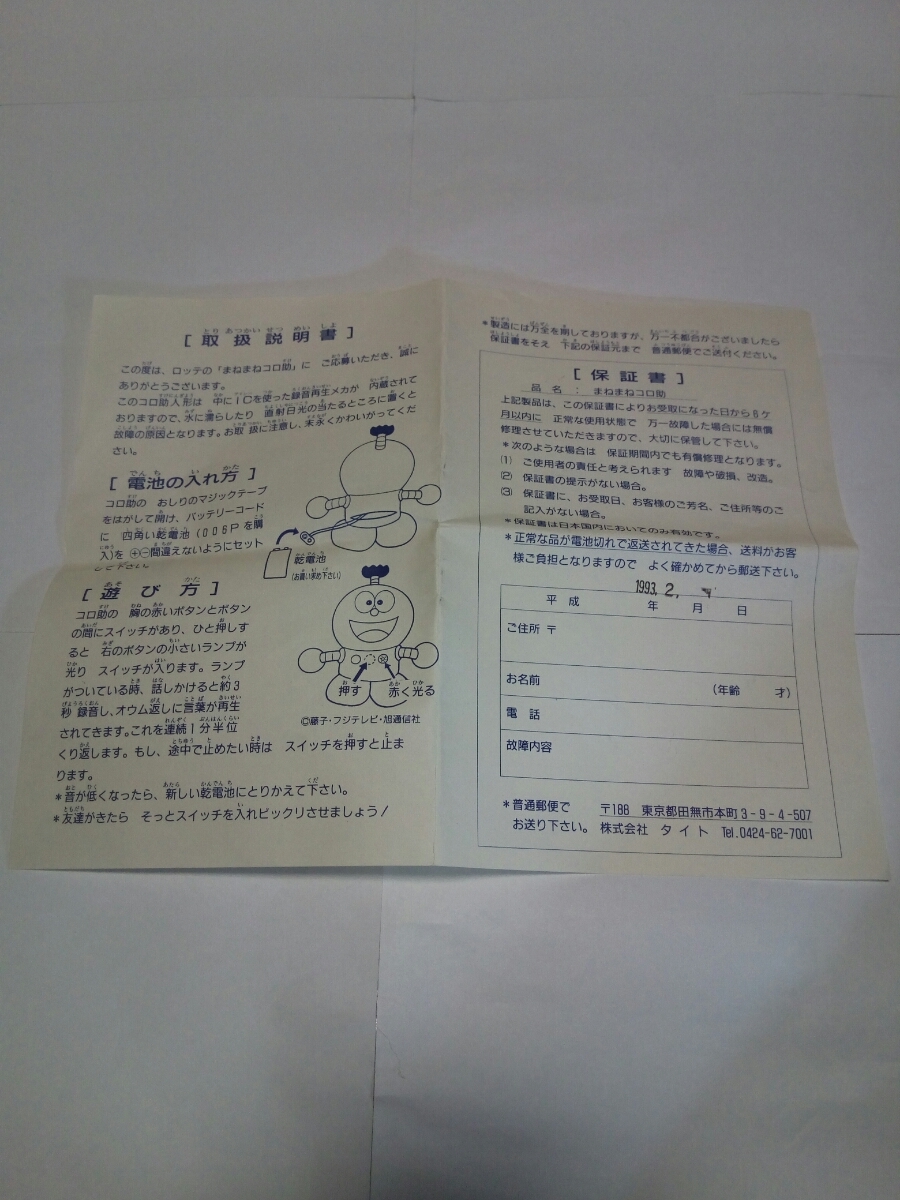 [ 取扱説明書 ]
この度は、ロッテの「まねまねコロ助」に ご応募いただき、誠に
ありがとうございます。
このコロ助人形は 中にICを使った録音再生メカが 内蔵されて
おりますので、水に濡らしたり 直射日光の当たるところに置くと
故障の原因となります。お取 扱に注意し、末永くかわいがってくだ
さい。
[ 電池の入れ方 ]
コロ助の おしりのマジックテープ
をはがして開け、バッテリーコード
に 四角い乾電池(006Pを購
入)を ⊕⊖間違えないようにセット
して下さい。
乾電池
(お買い求め下さい)
[ 遊び方 ]
コロ助の 胸の赤いボタンとボタン
の間にスイッチがあり、ひと押しす
ると 右のボタンの小さいランプが
光り スイッチが入ります。ランプ
がついている時、話しかけると約3
秒 録音し、オウム返しに言葉が再生
されてきます。これを連続1分半位
くり返します。もし、途中で止めたい時は スイッチを押すと止ま
ります。
押す 赤く光る
©藤子・フジテレビ・旭通信社
*音が低くなったら、新しい乾電池にとりかえて下さい。
*友達がきたら そっとスイッチを入れビックリさせましょう!
*製造には万全を期しておりますが、万一不都合がございましたら
保証書をそえ 下記の保証元まで 普通郵便でご送付ください。
[ 保証書 ]
品名: まねまねコロ助
上記製品は、この保証書によりお受取になった日から6ケ
月以内に 正常な使用状態で 万一故障した場合には無償
修理させていただきますので、大切に保管して下さい。
*次のような場合は 保証期間内でも有償修理となります。
(1) ご使用者の責任と考えられます 故障や破損、改造。
(2) 保証書の提示がない場合。
(3) 保証書に、お受取日、お客様のご芳名、ご住所等のご
記入がない場合。
*保証書は日本国内においてのみ有効です。
*正常な品が電池切れで返送されてきた場合、送料がお客
様ご負担となりますので よく確かめてから郵送下さい。
1993. 2,
平成 年 月 日
ご住所 〒
お名前 (年齢 才)
電話
故障内容
*普通郵便で 〒188 東京都田無市本町3-9-4-507
お送り下さい。 株式会社 タイト Tel.0424-62-7001